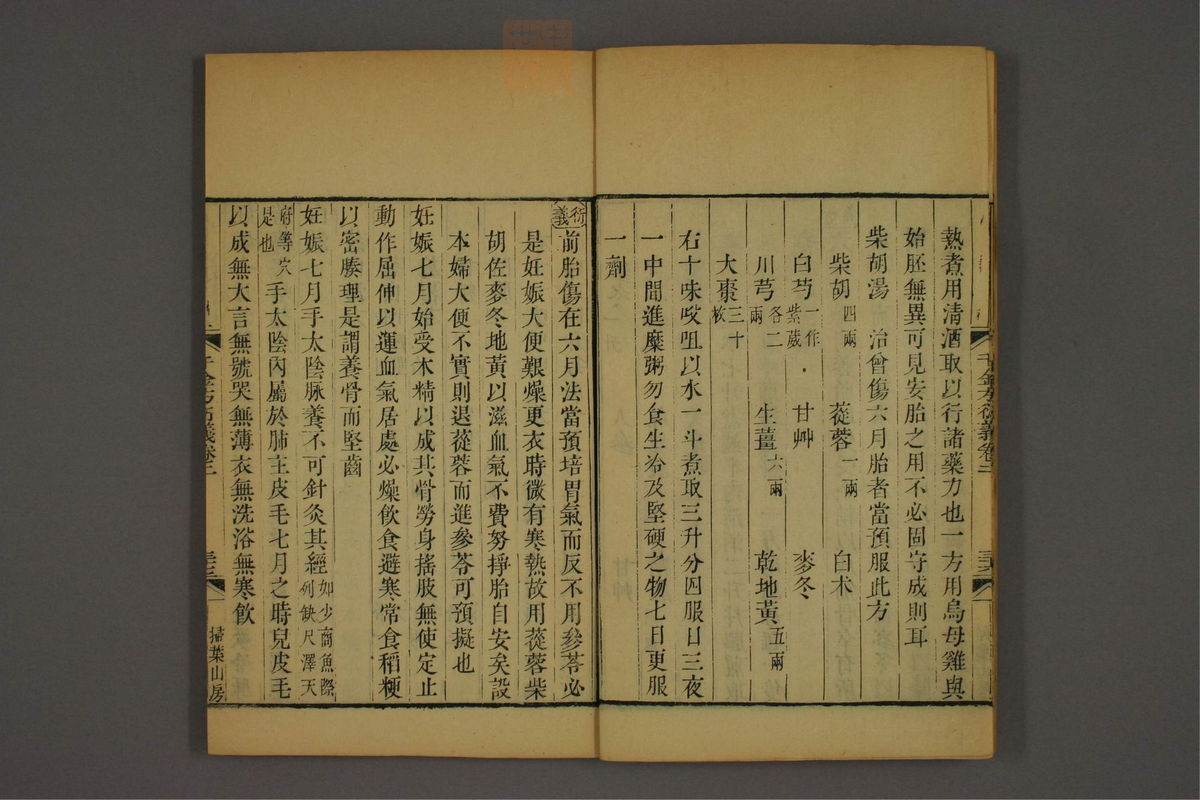 熱煮用清酒取以行諸藥力也一方用烏母雞與
始胚無異可見安胎之用不必固守成則耳
柴胡湯 治曾傷六月胎者當預服此方
柴胡四兩 蓯蓉一兩 白朮
白芍一作紫葳 甘艸 麥冬
川芎各二兩 生薑六兩 乾地黃五兩
大棗三十枚
右十味㕮咀以水一斗煮取三升分四服日三夜
一中間進糜粥勿食生冷及堅硬之物七日更服
一劑
衍義
前胎傷在六月法當預培胃氣而反不用參苓必
是妊娠大便艱燥更衣時微有寒熱故用蓯蓉柴
胡佐麥冬地黃以滋血氣不費努掙胎自安矣設
本婦大便不實則退蓯蓉而進參苓可預擬也
妊娠七月始受木精以成其骨勞身搖肢無使定止
動作屈伸以運血氣居處必燥飲食避寒常食稻粳
以密腠理是謂養骨而堅齒
妊娠七月手太陰脈養不可針灸其經如少商魚際列缺尺澤天
府等穴是也手太陰內屬於肺主皮毛七月之時兒皮毛
以成無大言無號哭無薄衣無洗浴無寒飲
千金方衍義卷二
掃葉山房